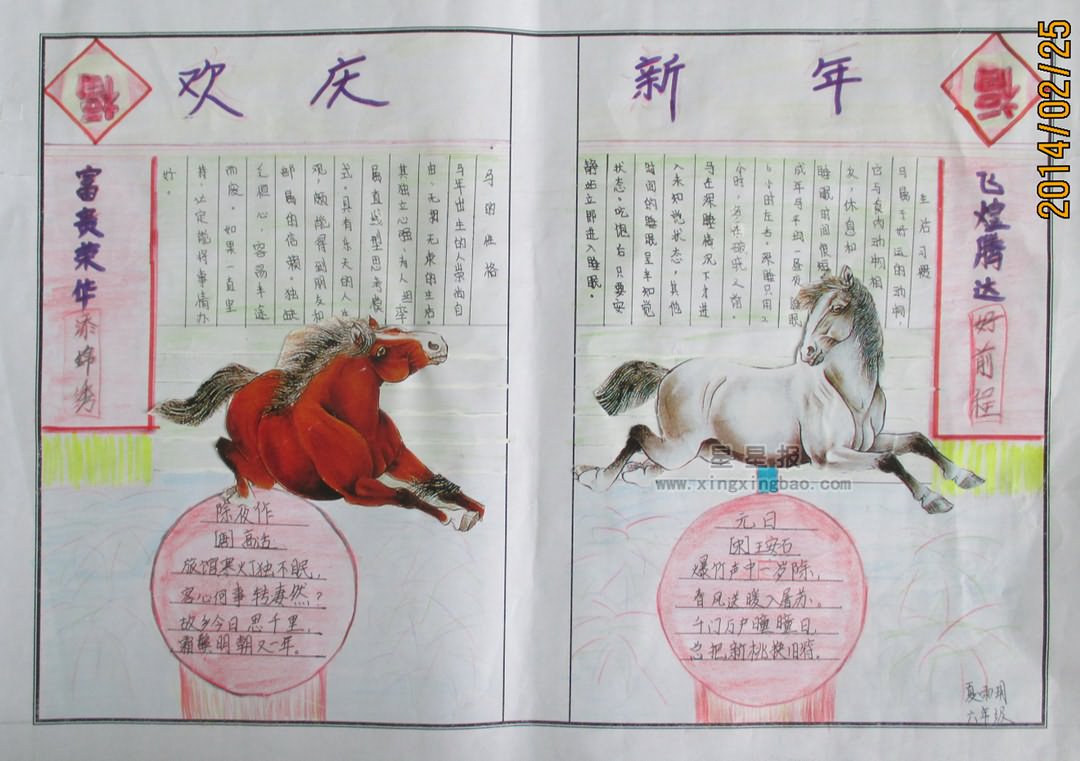 欢庆
新年
福
福
2014/02/25
富贵荣华
添锦秀
马的性格
马年出生的人崇尚自
由、无羁、无束的生活。
其独立心强,有人
属直感型思考模
式,具有乐天的人生
观,颇能得到朋友和
部属的信赖。独缺
恒心,容易半途
而废。如果一直坚
持,必定能将事情办
好。
生活习惯
马属于好运的动物,
它与食肉动物相
反,休息和
睡眠时间很短,
成年马平均一昼夜睡眠
6小时左右,深睡只用2
小时,多在破晓之前。
马在深睡情况下才进
入未知觉状态,其他
时间的睡眠呈半知觉
状态。吃饱后只要安
静站立即进入睡眠。
飞煌腾达
好前程
除夜作
[唐]高适
旅馆寒灯独不眠,
客心何事转凄然?
故乡今日思千里,
霜鬓明朝又一年。
元日
[宋]王安石
爆竹声中一岁除,
春风送暖入屠苏。
千门万户曈曈日,
总把新桃换旧符。
星星报
www.xingxingbao.com
六年级